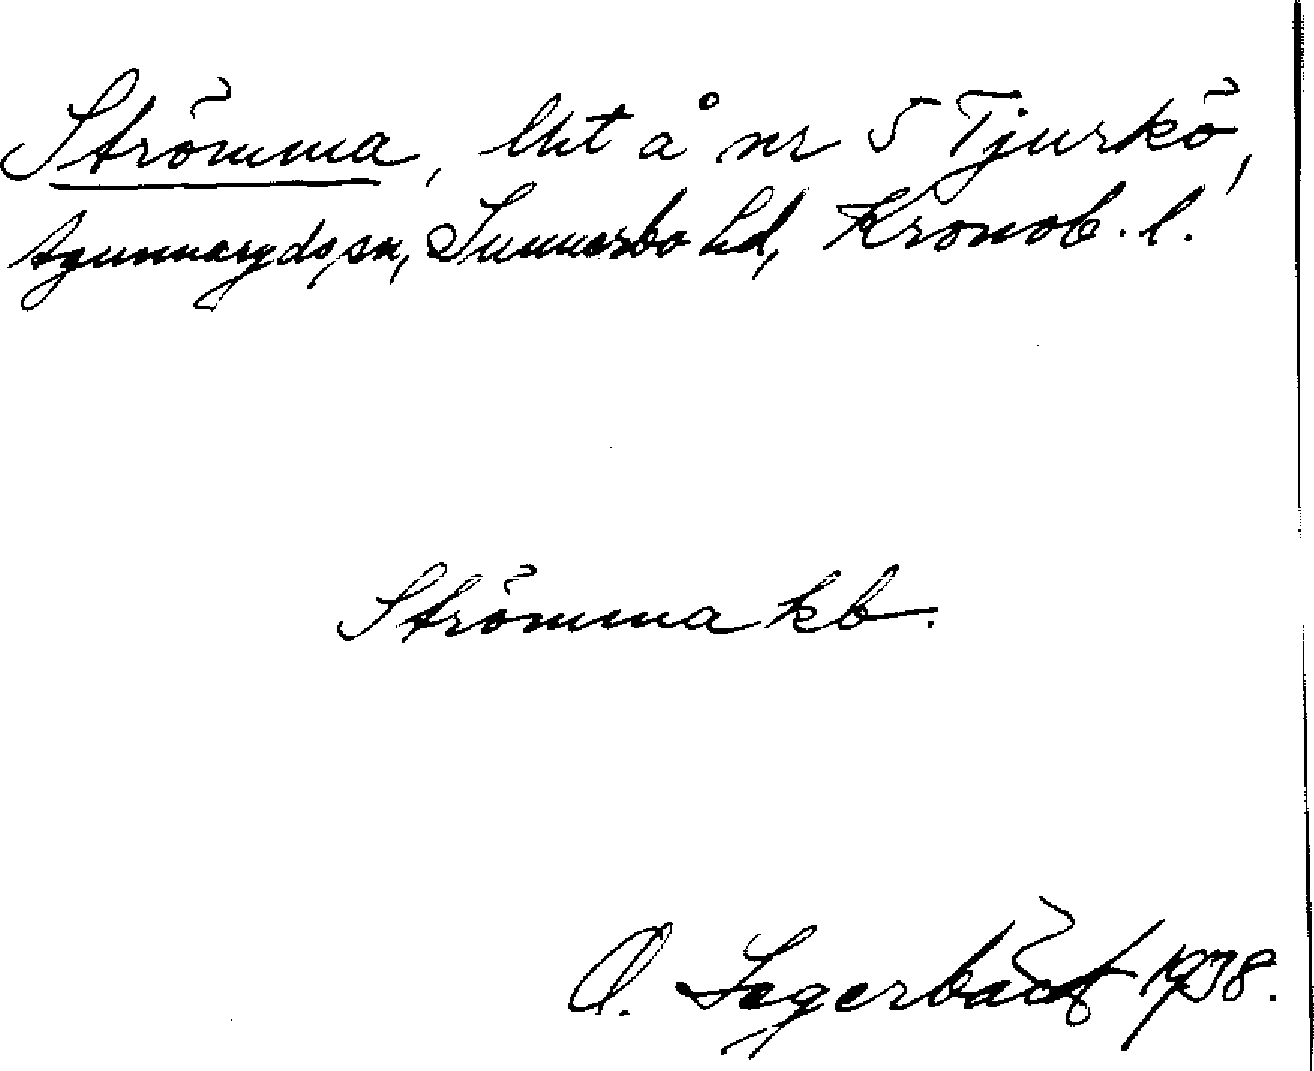 Strömma, lht å nr 5 Tjurkö,
Agunnaryds sn, Sunnerbo hd, Kronob. l.
Strömma kb.
O. Lagerbäck 1938.